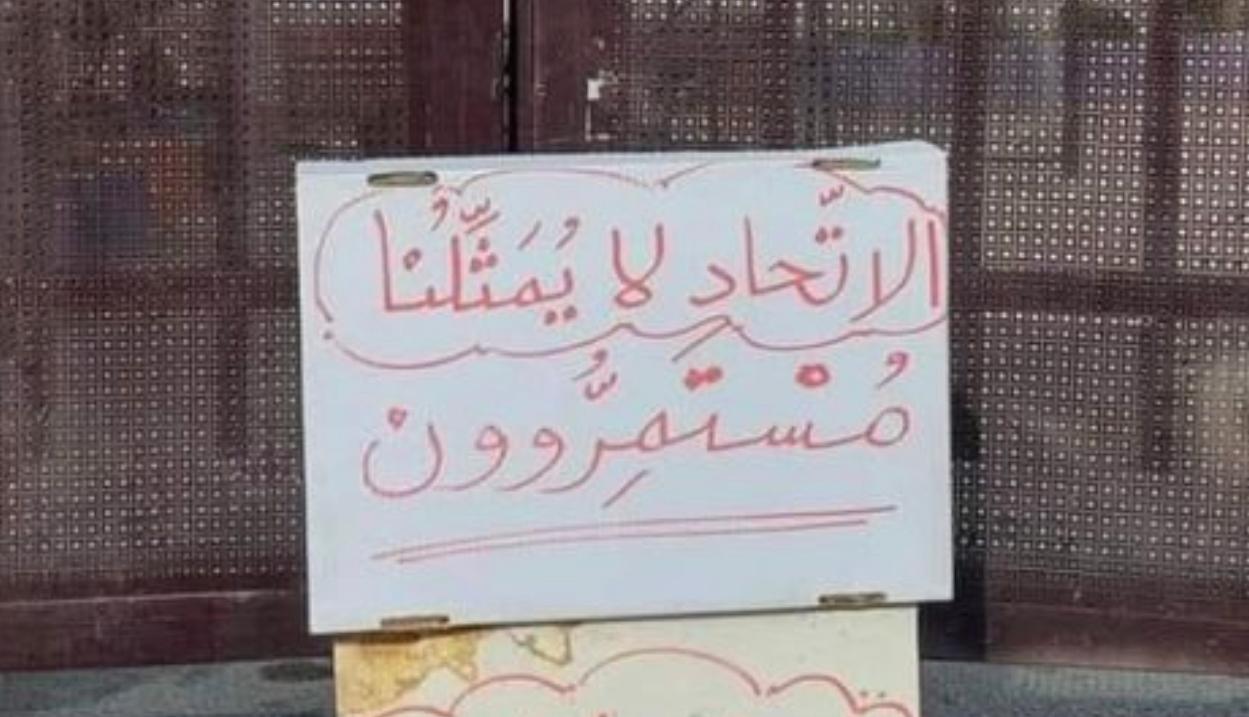 الاتّحاد لا يُمَثِّلُنا
مُسْتمِرُّوون